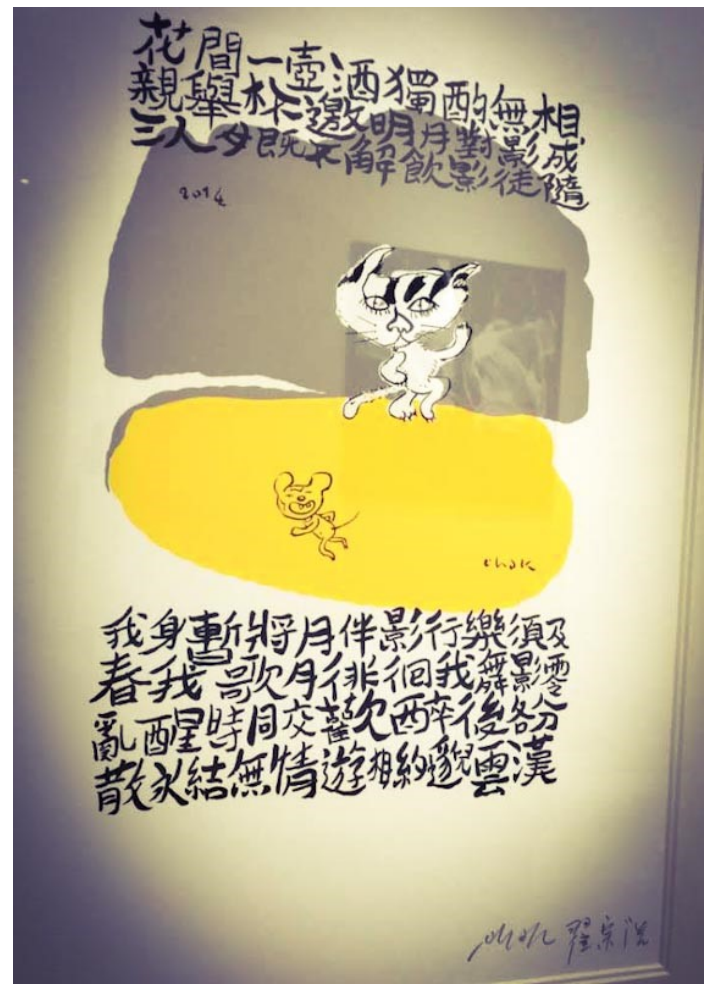 花間一壺酒獨酌無相
親舉杯邀明月對影成
三人月既不解飲影徒隨
2014
chak
我身暫將月伴影行樂須及
春我歌月徘徊我舞影零
亂醒時同交歡醉後各分
散永結無情遊相約邈雲漢
翟宗浩